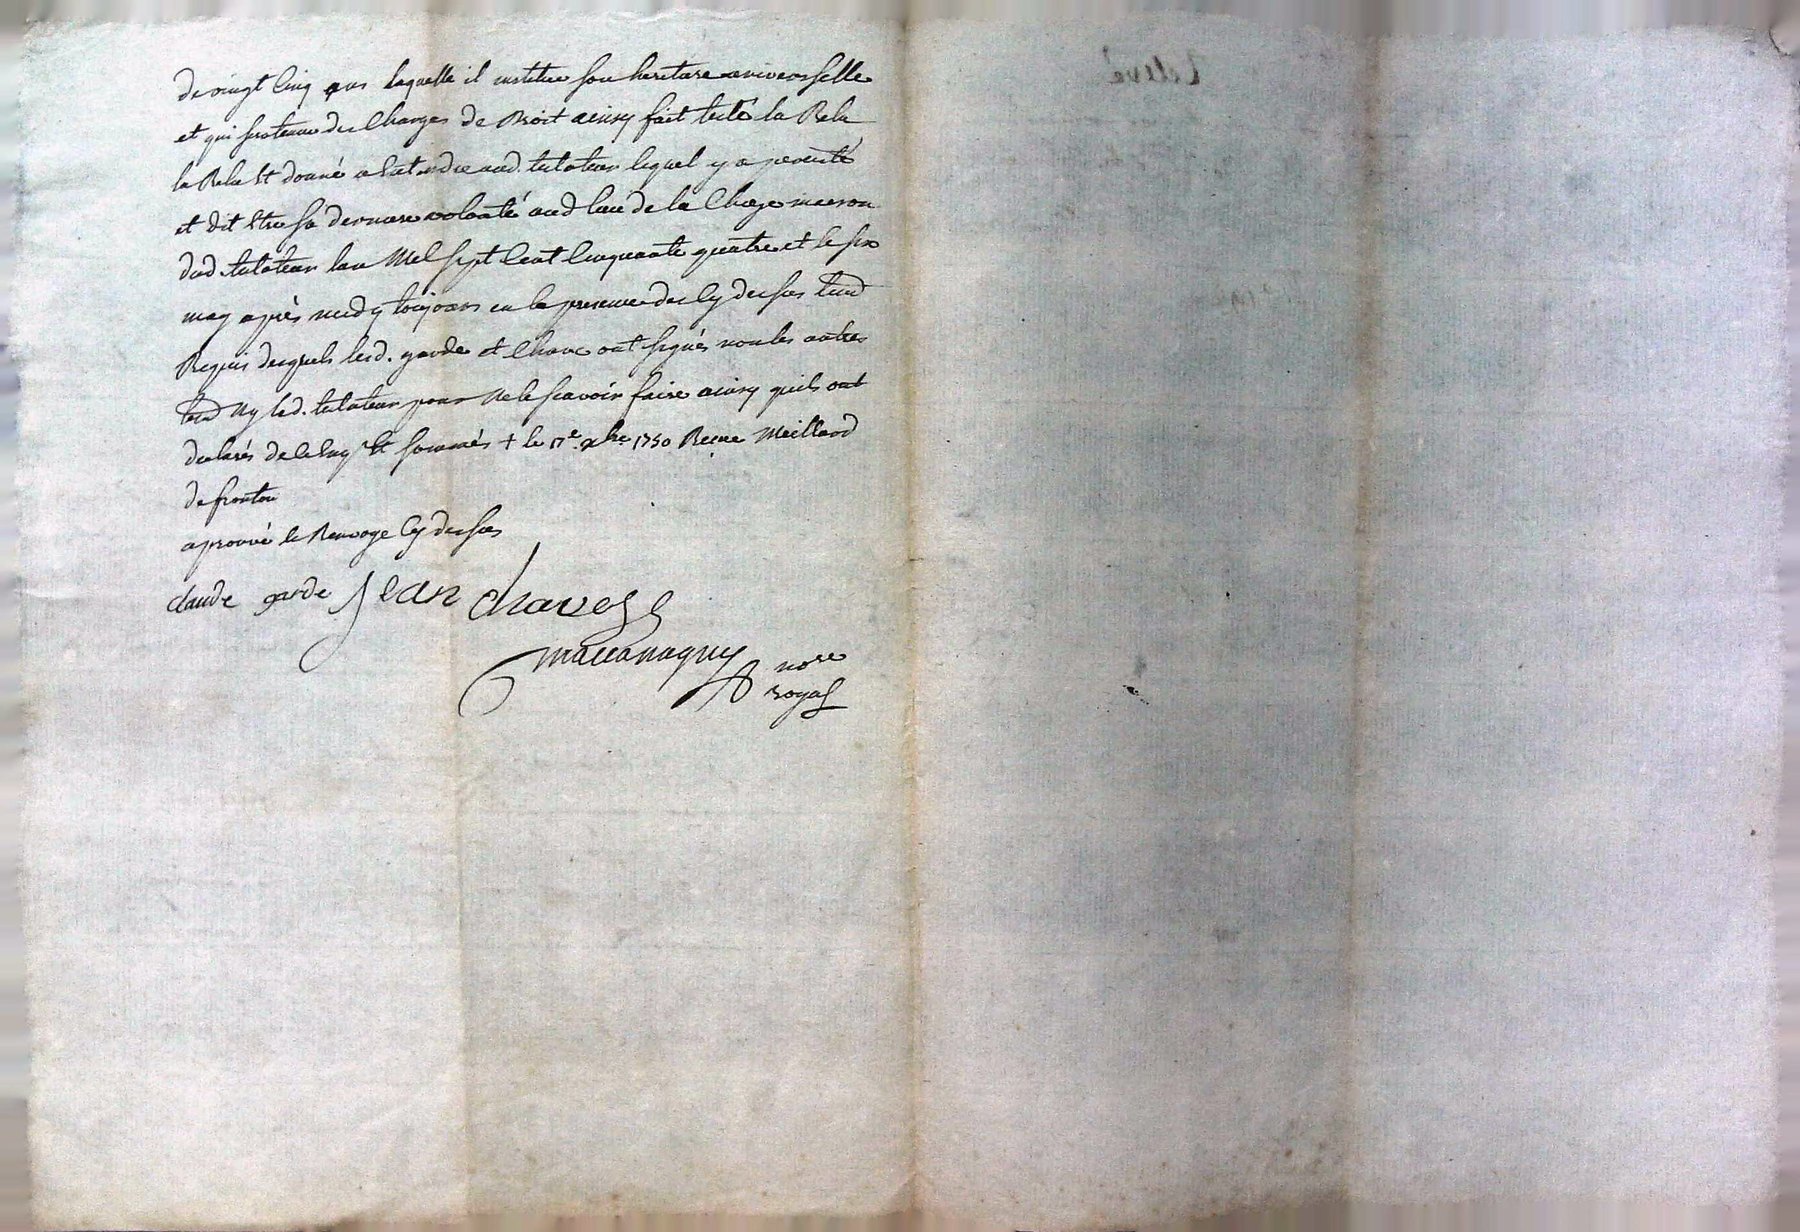 de vingt Cinq ans laquelle il institue son heritiere universselle
et qui sera tenue des Charges de Droit ainsy fait testé la Relu
la Relu et donné a Entendre aud. testateur lequel y a persisté
et dit Etre sa derniere volonté aud lieu de la Chaze maison
dud. testateur lan Mil sept Cent Cinquante quatre et le six
may après midy toujours en la presence des Cy dessus temd
Requis desquels lesd. garde et Chave ont signés non les autres
temd Ny led. testateur pour Ne le scavoir faire ainsy quils ont
declarés de ce Enq.t Et sommés + le 17e. xbre 1750 Reçue Meilland
de fronton
aprouvé le Renvoye Cy dessus
claude garde Jean chave
maccanaguy nore
royal
Relevé